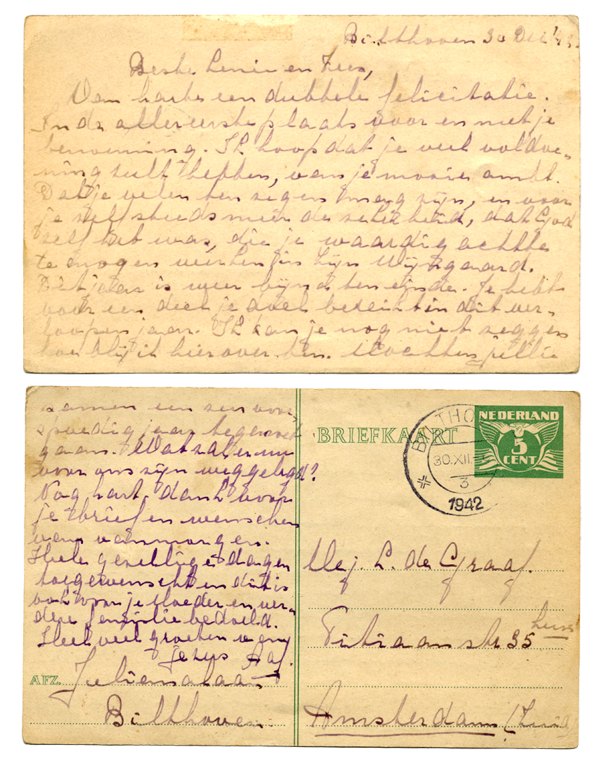 Bilthoven 30 Dec '42.
Beste Lenie en Zees,
Van harte een dubbele felicitatie.
In de allereerste plaats voor en met je
benoeming. Ik hoop dat je veel voldoe-
ning zult hebben, van je mooie ambt.
Dat je velen ten zegen mag zijn, en voor
je zelf steeds meer de zekerheid, dat God
zelf het was, die je waardig achtte
te mogen werken in Zijn Wijngaard.
Het jaar is weer bijna ten einde. Je hebt
voor een deel je doel bereikt in dit ver-
loopen jaar. Ik kan je nog niet zeggen
hoe blij ik hierover ben. Mochten jullie
samen een zeer voor-
spoedig jaar tegemoet
gaan. Wat zal er nu
voor ons zijn weggelegd?
Nog hart. dank voor
je brief en wenschen
van vanmorgen.
Hele gezellige dagen
toegewenscht en dit is
ook voor je Moeder en ver-
dere familie bedoeld.
Heel veel groeten van
AFZ. Julianalaan
Bilthoven.
BRIEFKAART
NEDERLAND
5
CENT
BILTHOVEN
30.XII
3
1942
Mej. L. de Graaf.
Titiaanstr 35 huis
Amsterdam (Zuid)